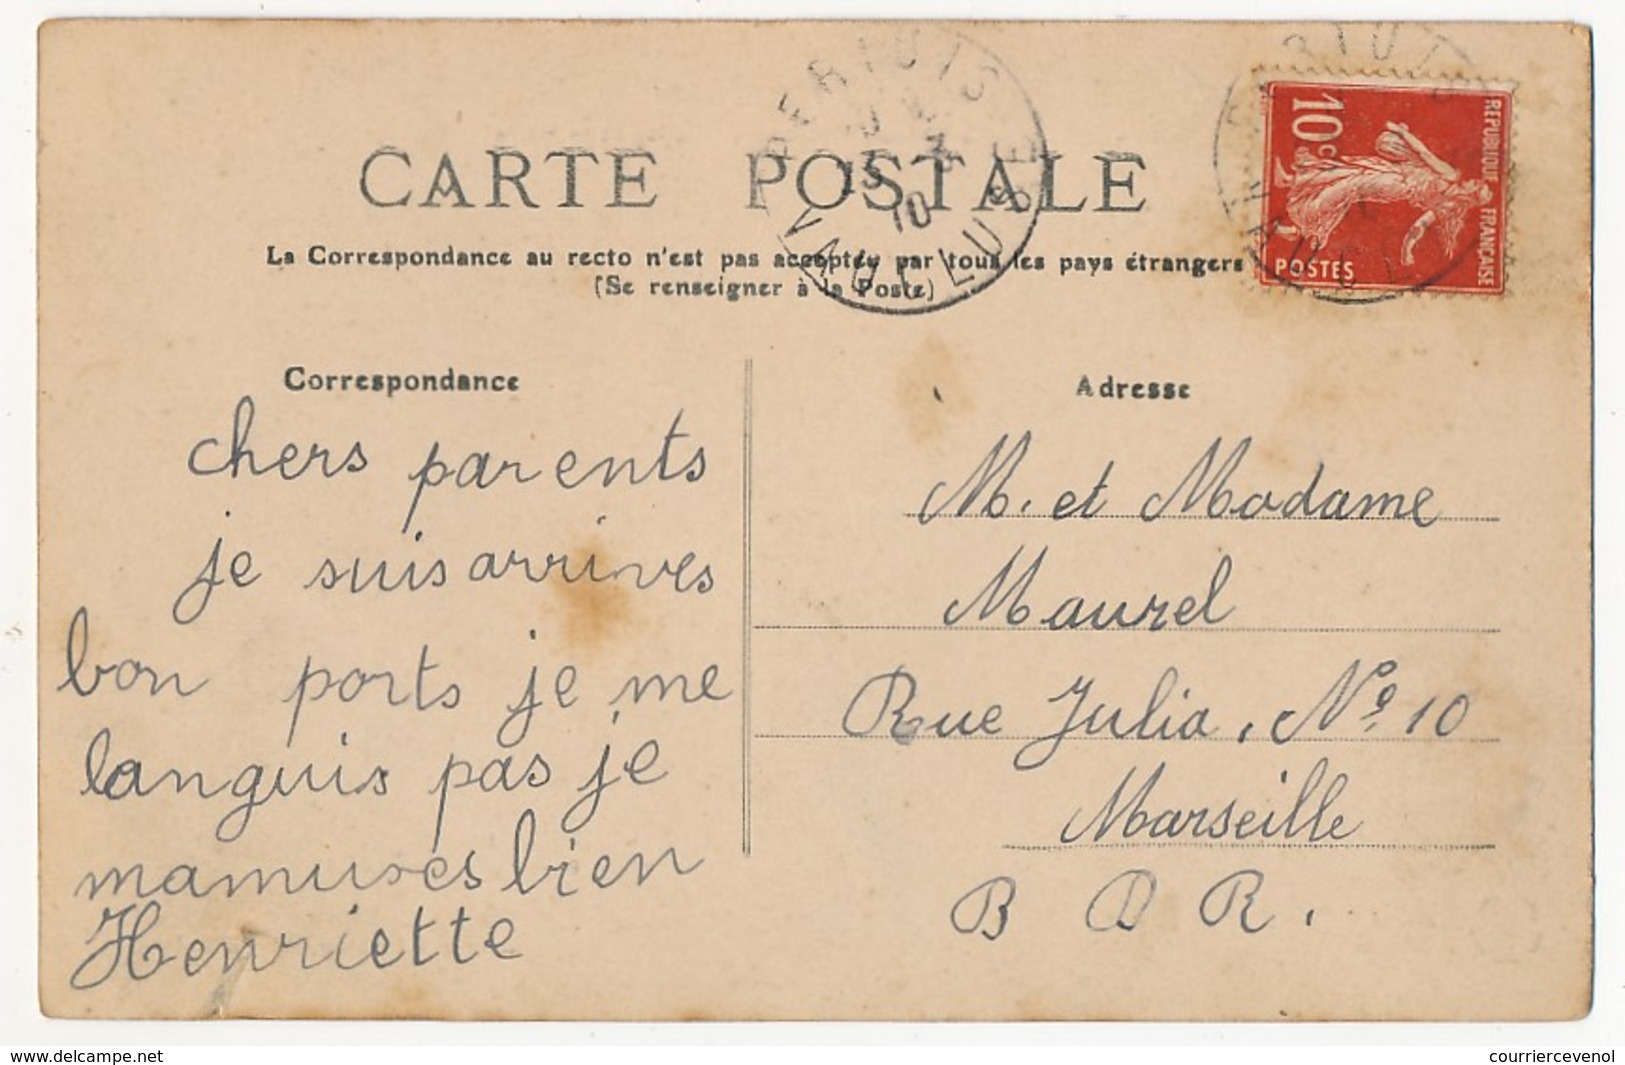 CARTE POSTALE
La Correspondance au recto n'est pas acceptée par tous les pays étrangers
(Se renseigner à la Poste)
PERTUIS
VAUCLUSE
10
10c
REPUBLIQUE FRANÇAISE
POSTES
Correspondance
chers parents
je suis arrives
bon ports je me
languis pas je
mamuses bien
Henriette
Adresse
M. et Madame
Maurel
Rue Julia, Nº 10
Marseille
B D R.
delcampe.net
courriercevenol